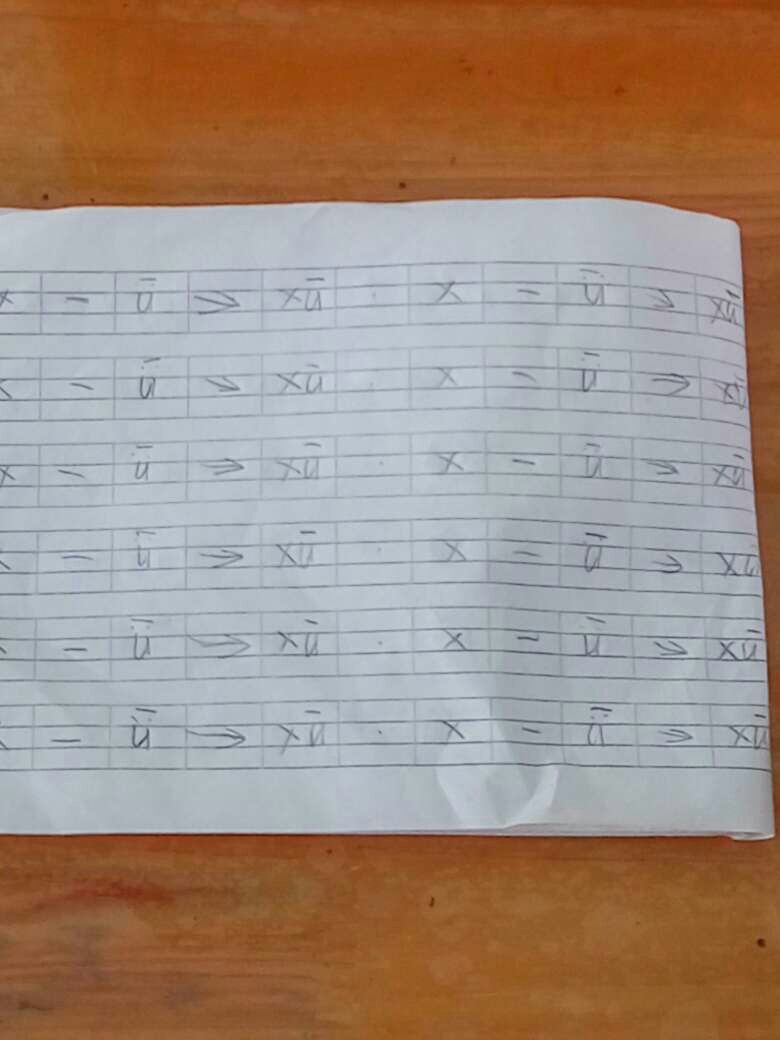 x - ǖ → xū · x - ǖ → xū
x - ǖ → xū · x - ǖ → xū
x - ǖ → xū · x - ǖ → xū
x - ǖ → xū · x - ǖ → xū
x - ǖ → xū · x - ǖ → xū
x - ǖ → xū · x - ǖ → xū